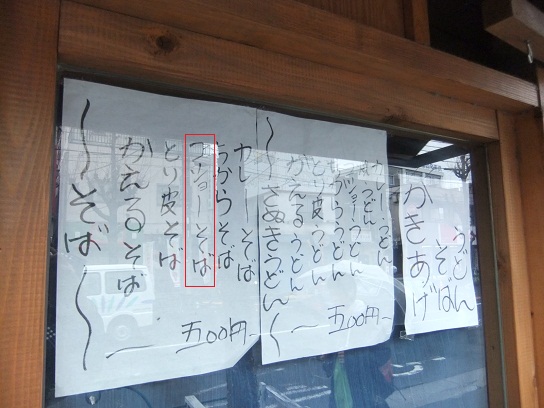 うどん
そば
かきあげ
カレーうどん
コショーうどん
ちからうどん
とり皮うどん
かえるうどん
〜さぬきうどん〜
五00円〜
カレーそば
ちからそば
コショーそば
とり皮そば
かえるそば
〜そば〜
五00円〜